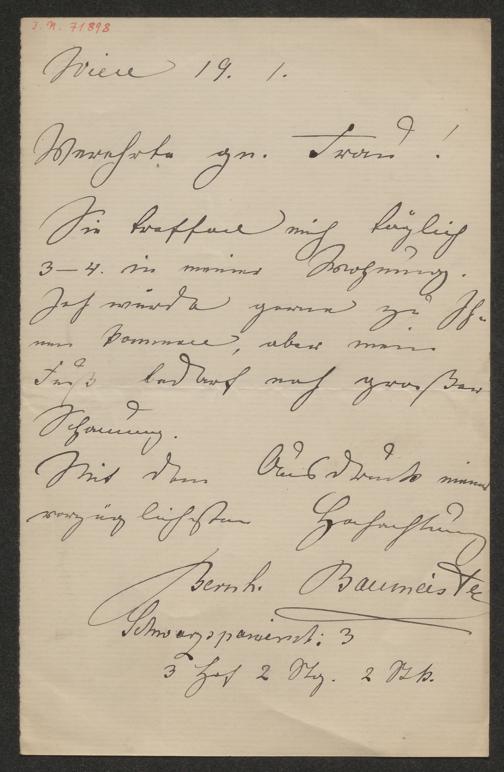 J.N. 71898
Wien 19. 1.
Verehrte gn. Frau!
Sie treffen mich täglich
3–4. in meiner Wohnung.
Ich würde gerne zu Ih-
nen kommen, aber mein
Fuß bedarf noch großer
Schonung.
Mit dem Ausdruck meiner
vorzüglichsten Hochachtung
Bernh. Baumeister
Schwarzspanierst: 3
3 Hof 2 Stg. 2 Stk.